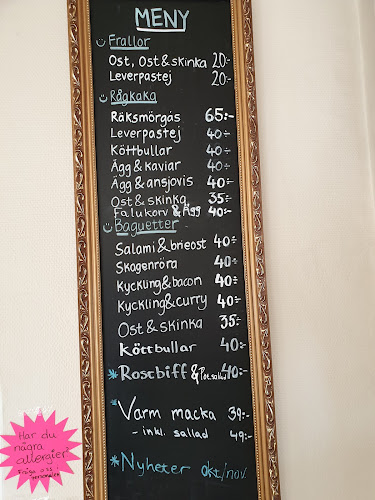 MENY
Frallor
Ost, Ost & skinka 20:-
Leverpastej 20:-
Rågkaka
Räksmörgås 65:-
Leverpastej 40:-
Köttbullar 40:-
Ägg & kaviar 40:-
Ägg & ansjovis 40:-
Ost & skinka 35:-
Falukorv & Ägg 40:-
Baguetter
Salami & brieost 40:-
Skagenröra 40:-
Kyckling & bacon 40:-
Kyckling & curry 40:-
Ost & skinka 35:-
Köttbullar 40:-
*Rostbiff & Pot.sallad 40:-
Varm macka 39:-
- inkl. sallad 49:-
*Nyheter okt/nov.
Har du
några
allergier
Fråga oss i
personalen!